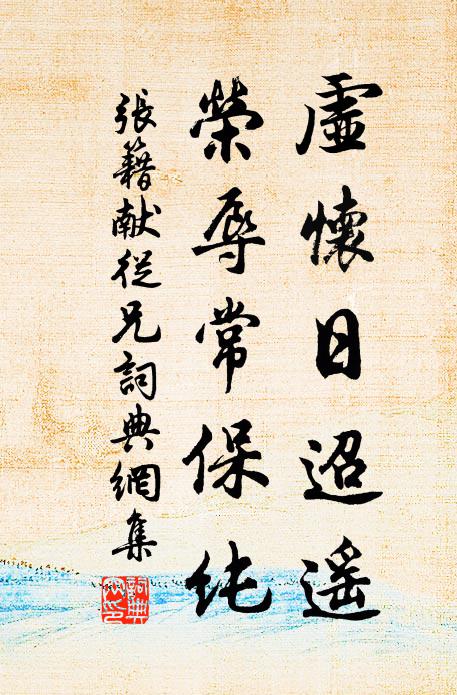 虛懷日迢遥
榮辱常保純
張籍献從兄詞典網集